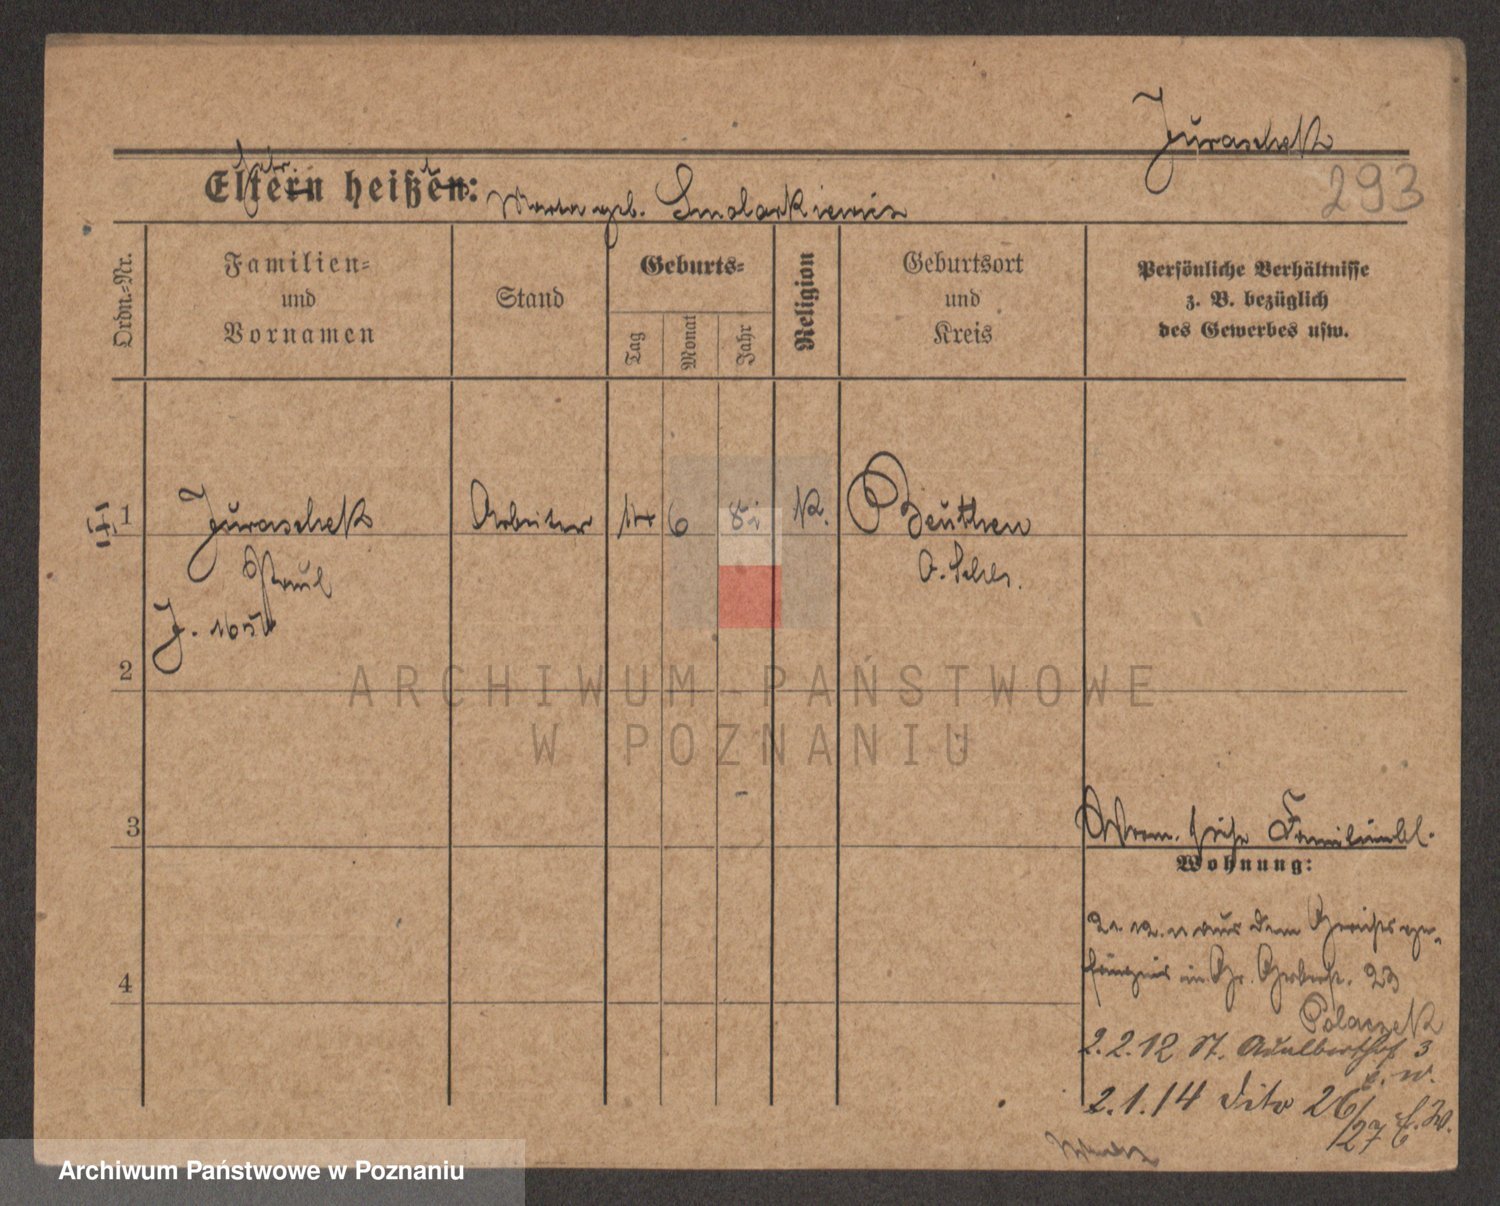 Juraschek
293
Eltern heißen: Maria geb. Smolarkiewicz
Ordn.-Nr.
Familien-
und
Vornamen
Stand
Geburts-
Tag
Monat
Jahr
Religion
Geburtsort
und
Kreis
Persönliche Verhältnisse
z. B. bezüglich
des Gewerbes usw.
1
Juraschek
Arbeiter
6
K.
Beuthen
Paul
O. Schls.
J.
2
3
Familienbl.
Wohnung:
aus dem Gerichtsge-
fängnis in Gr. Gerberst. 23
Polaczek
4
2.2.12 St. Adalbertstr. 3
2.1.14 dito 26/27
ARCHIWUM PAŃSTWOWE
W POZNANIU
Archiwum Państwowe w Poznaniu